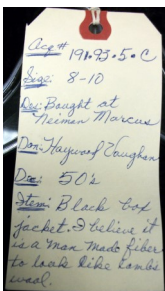 Acq# 191.93.5.C
Size: 8-10
Des: Bought at
Neiman Marcus
Don: Hayward Vaughan
Dec: 50's
Item: Black box
jacket. I believe it
is a man made fiber
to look like lambs
wool.